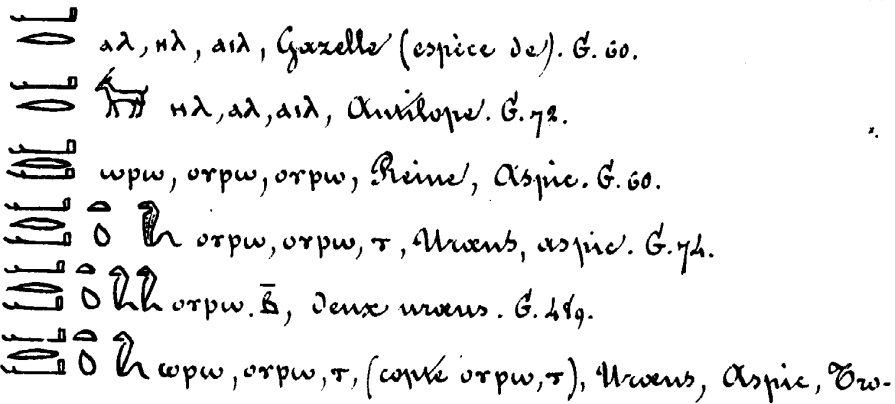 𓂝𓂋 ⲁⲗ, ⲏⲗ, ⲁⲓⲗ, Gazelle (espèce de). G. 60.
𓂝𓂋 ⲏⲗ, ⲁⲗ, ⲁⲓⲗ, Antilope. G. 72.
𓂝𓂋𓂝 ⲱⲣⲱ, ⲟⲩⲣⲱ, ⲟⲩⲣⲱ, Reine, Aspic. G. 60.
𓂝𓂋𓂝𓏏𓆇 ⲟⲩⲣⲱ, ⲟⲩⲣⲱ, ⲧ, Uraeus, aspic. G. 74.
𓂝𓂋𓂝𓏏𓆇 ⲟⲩⲣⲱ. ⲃ̄, deux uraeus. G. 489.
𓂝𓂋𓂝𓏏𓆇 ⲱⲣⲱ, ⲟⲩⲣⲱ, ⲧ, (copte ⲟⲩⲣⲱ, ⲧ), Uraeus, Aspic, Tro-